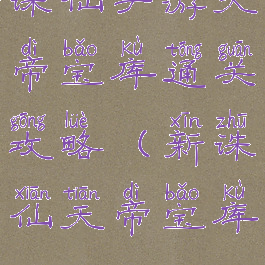 诛仙手游天
dì bǎo kù tōng guān
帝宝库通关
gōng lüè xīn zhū
攻略(新诛
xiān tiān dì bǎo kù
仙天帝宝库